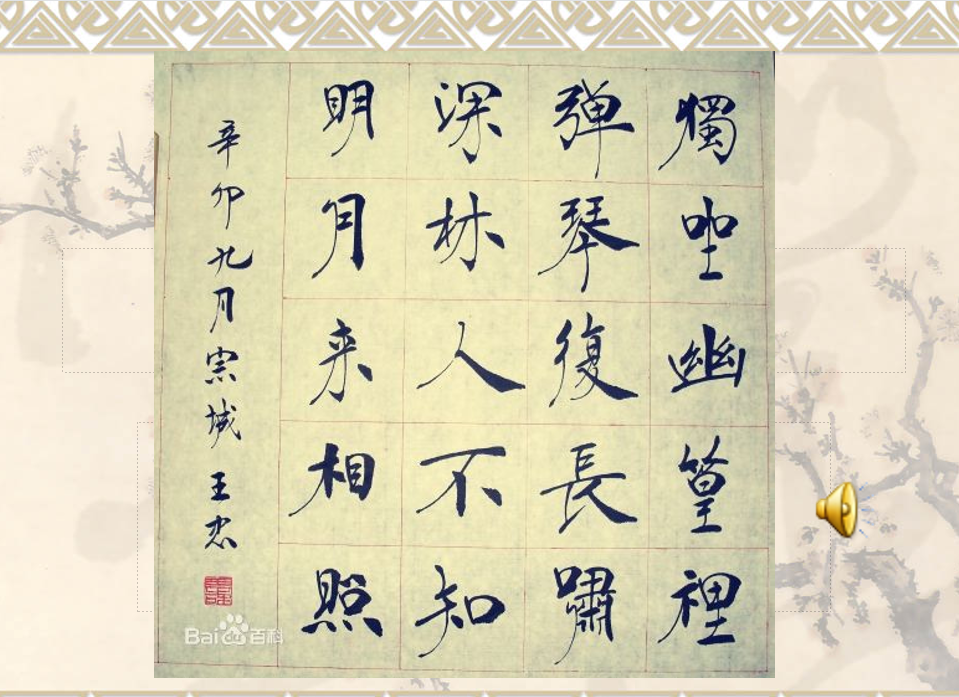 獨坐幽篁裡
弹琴復長嘯
深林人不知
明月来相照
辛卯九月宗城王
Bai百科